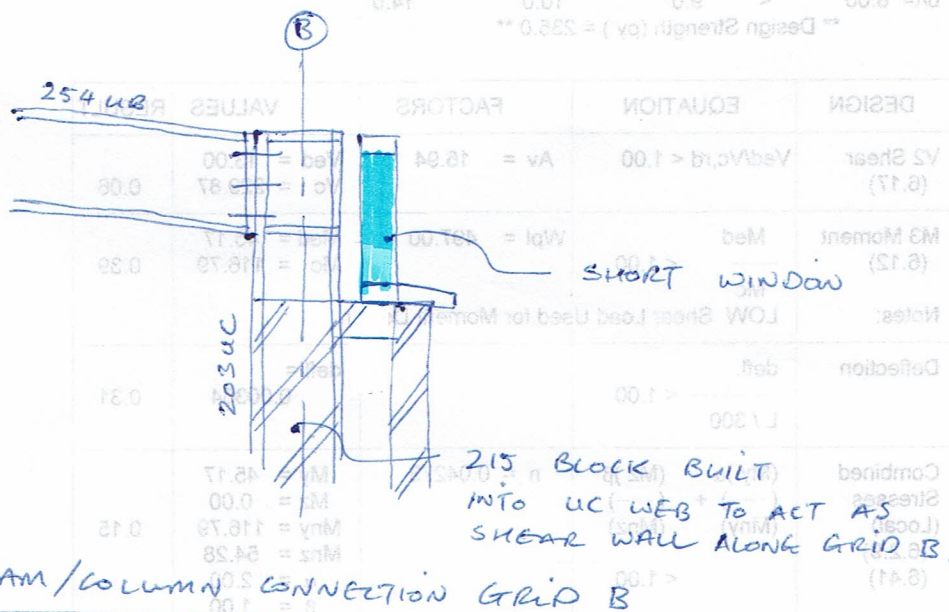 B
254 UB
SHORT WINDOW
203 UC
215 BLOCK BUILT
INTO UC WEB TO ACT AS
SHEAR WALL ALONG GRID B
AM/COLUMN CONNECTION GRID B